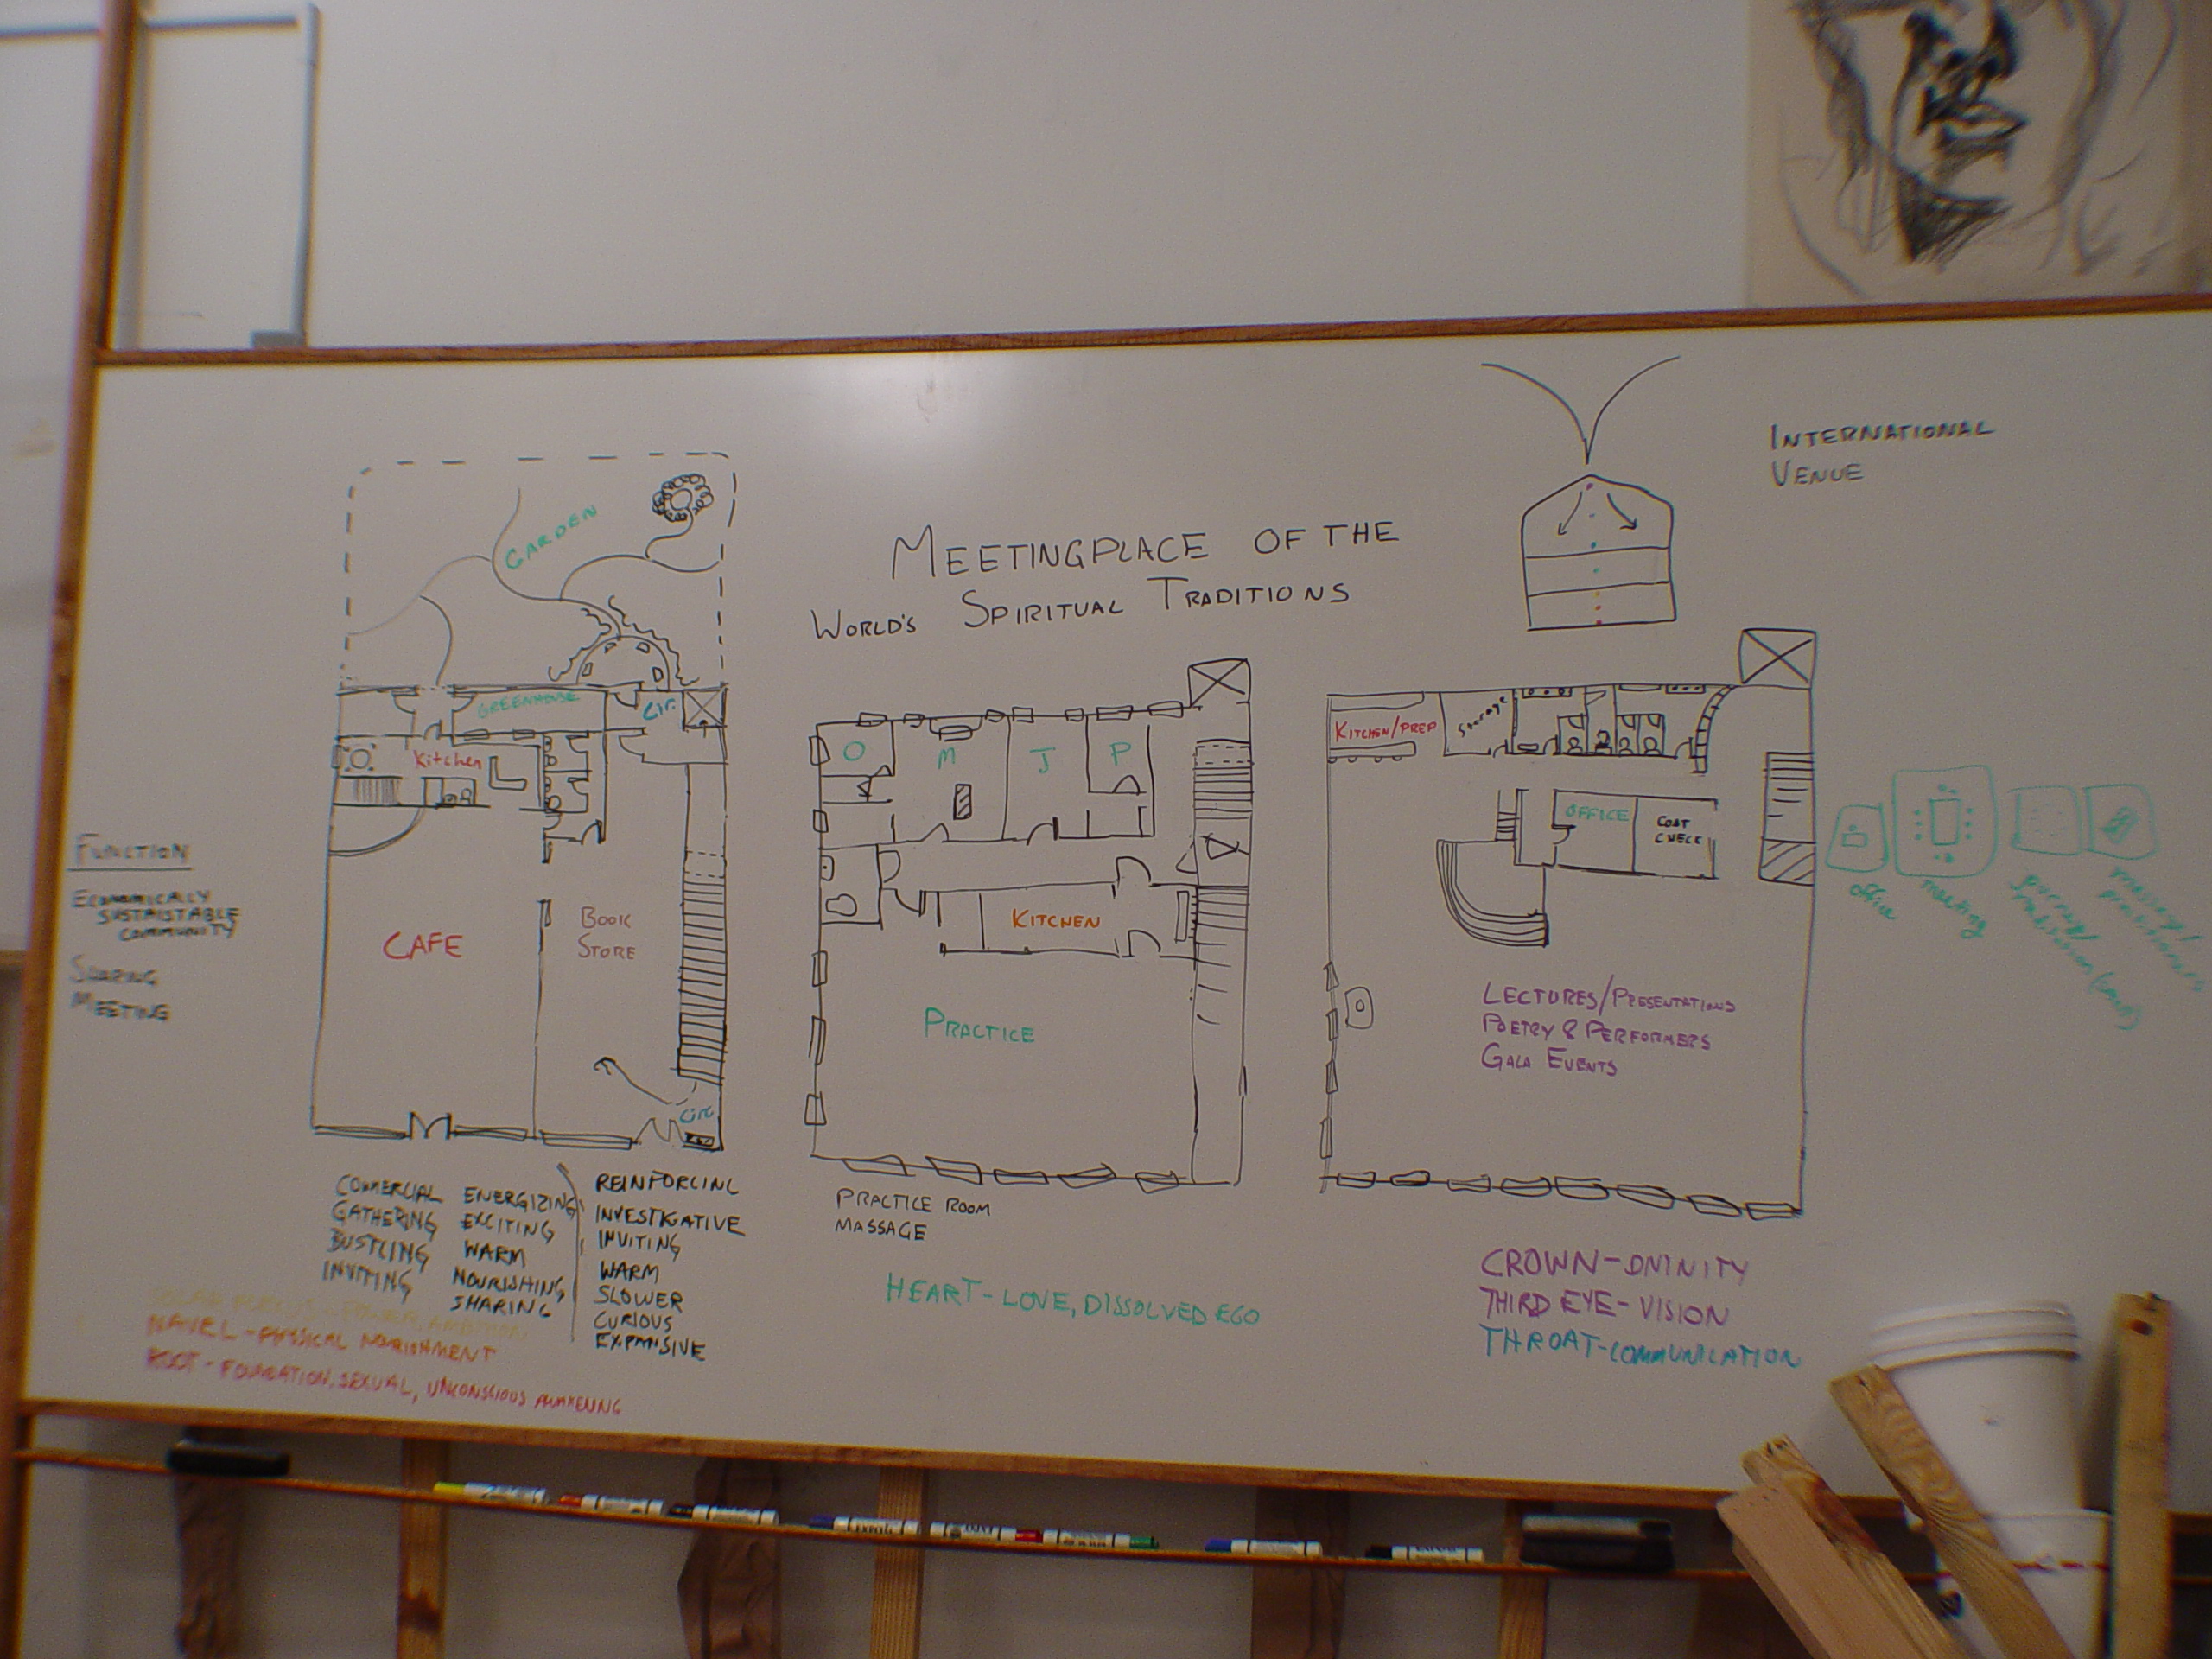 INTERNATIONAL
VENUE
MEETINGPLACE OF THE
WORLD'S SPIRITUAL TRADITIONS
GARDEN
GREENHOUSE
Cir.
Kitchen
CAFE
BOOK
STORE
Circ
FUNCTION
ECONOMICALLY
SUSTAISTABLE
COMMUNITY
SHARING
MEETING
COMMERCIAL
GATHERING
BUSTLING
INVITING
ENERGIZING
EXCITING
WARM
NOURISHING
SHARING
REINFORCING
INVESTIGATIVE
INVITING
WARM
SLOWER
CURIOUS
EXPANSIVE
SOLAR PLEXUS - POWER, AMBITION
NAVEL - PHYSICAL NOURISHMENT
ROOT - FOUNDATION, SEXUAL, UNCONSCIOUS AWAKENING
O
M
J
P
KITCHEN
PRACTICE
PRACTICE ROOM
MASSAGE
HEART - LOVE, DISSOLVED EGO
KITCHEN/PREP
Storage
OFFICE
COAT
CHECK
LECTURES/PRESENTATIONS
POETRY & PERFORMERS
GALA EVENTS
CROWN - DIVINITY
THIRD EYE - VISION
THROAT - COMMUNICATION
office
meeting
massage/